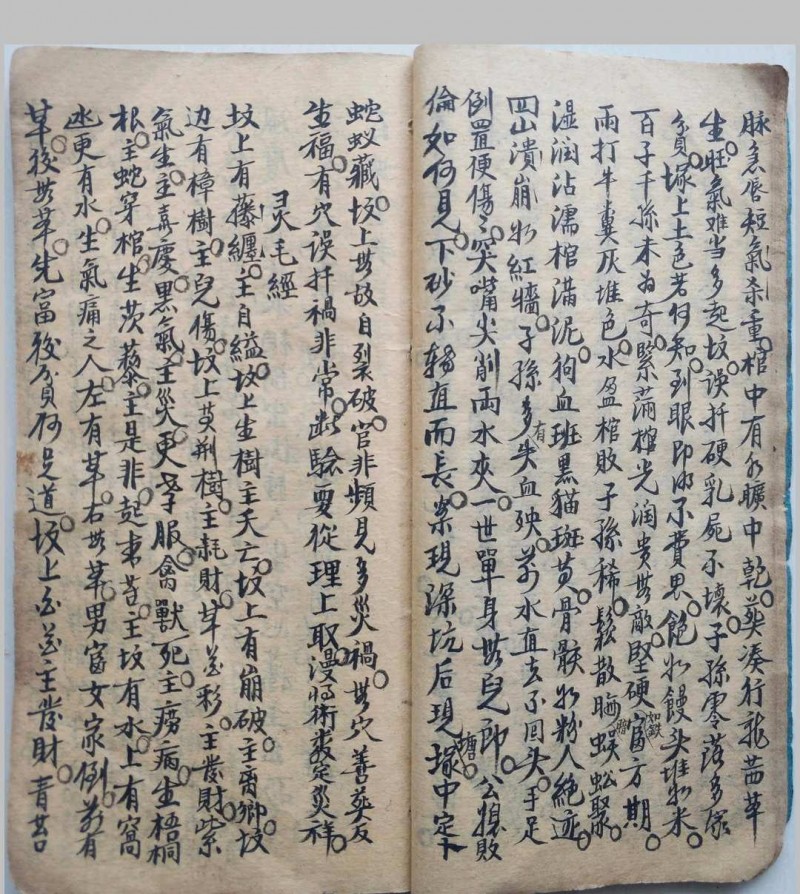 脉急唇短氣杀重棺中有水曠中乾葬凑行龍茁草
生旺氣难当多起坟误扦硬乳屍不壞子孫零落多家
貧塚上土色若何知到眼即明不費思飽如饅头堆如米
百子千孫未为奇緊滿棺光润贵無敵堅硬如鉄富方期
兩打牛糞灰堆色水盈棺敗子孫稀鬆散晦蜈蚣聚
湿润沾濡棺满泥狗血班黑貓斑黄骨骸如粉人絶迹
四山潰崩如紅牆子孫多有失血殃前水直去不回头手足
例置便傷之突嘴尖削両水夾一世單身無兒郎公狼敗
倫如何見下砂不轉直而長案現深坑后現塘塚中定卜
蛇蚁藏坟上無故自裂破官非頻見多災禍無穴善葬反
生福有穴误扦禍非常断驗要從理上取漫将術数定災祥
灵毛經
坟上有藤纏主自縊坟上生樹主夭亡坟上有崩破主离鄉坟
边有樟樹主兒傷坟上黄荆樹主耗財草花彩主發財紫
氣生主喜慶黒氣主災更孝服禽獸死主癆病生梧桐
根主蛇穿棺生茨藜主是非起青苔主坟有水上有窩
氹更有水生氣痛之人左有草右無草男富女家倒前有
草後無草先富後貧何足道坟上白花主發財青苔